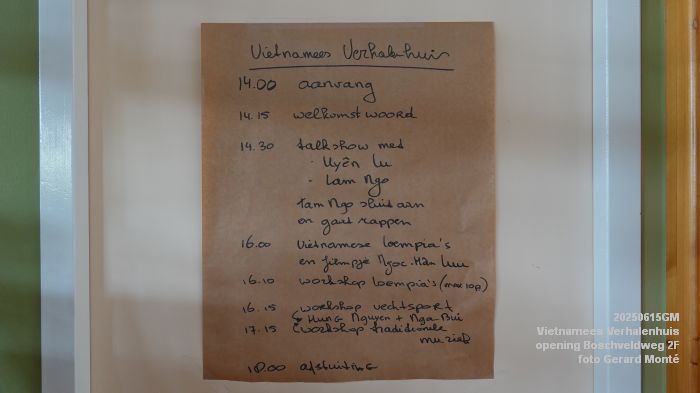 Vietnamees Verhalenhuis
14.00 aanvang
14.15 welkomstwoord
14.30 talkshow met
- Uyên Lu
- Lam Ngo
Lam Ngo sluit aan
en gaat rappen
16.00 Vietnamese loempia's
en filmpje Ngoc-Hân Luu
16.10 workshop loempia's (max 10p)
16.15 workshop vechtsport
Hung Nguyen + Nga Bui
17.15 workshop traditionele
muziek
18.00 afsluiting
20250615GM
Vietnamees Verhalenhuis
opening Boschveldweg 2F
foto Gerard Monté